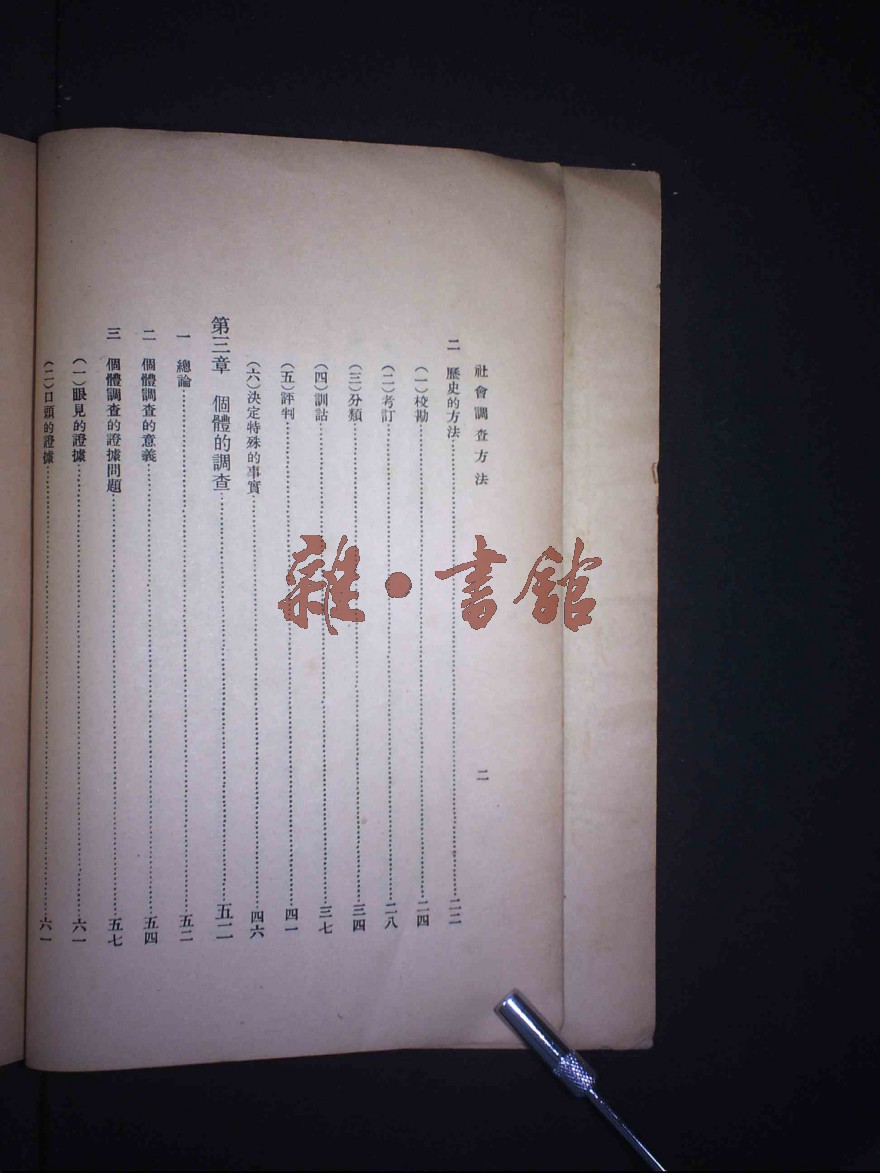 社會調查方法 二
二 歷史的方法 二二
（一）校勘 二四
（二）考訂 二八
（三）分類 三四
（四）訓詁 三七
（五）評判 四一
（六）決定特殊的事實 四六
第三章 個體的調查 五二
一 總論 五二
二 個體調查的意義 五四
三 個體調查的證據問題 五七
（一）眼見的證據 六一
（二）口頭的證據 六一
雜·書館